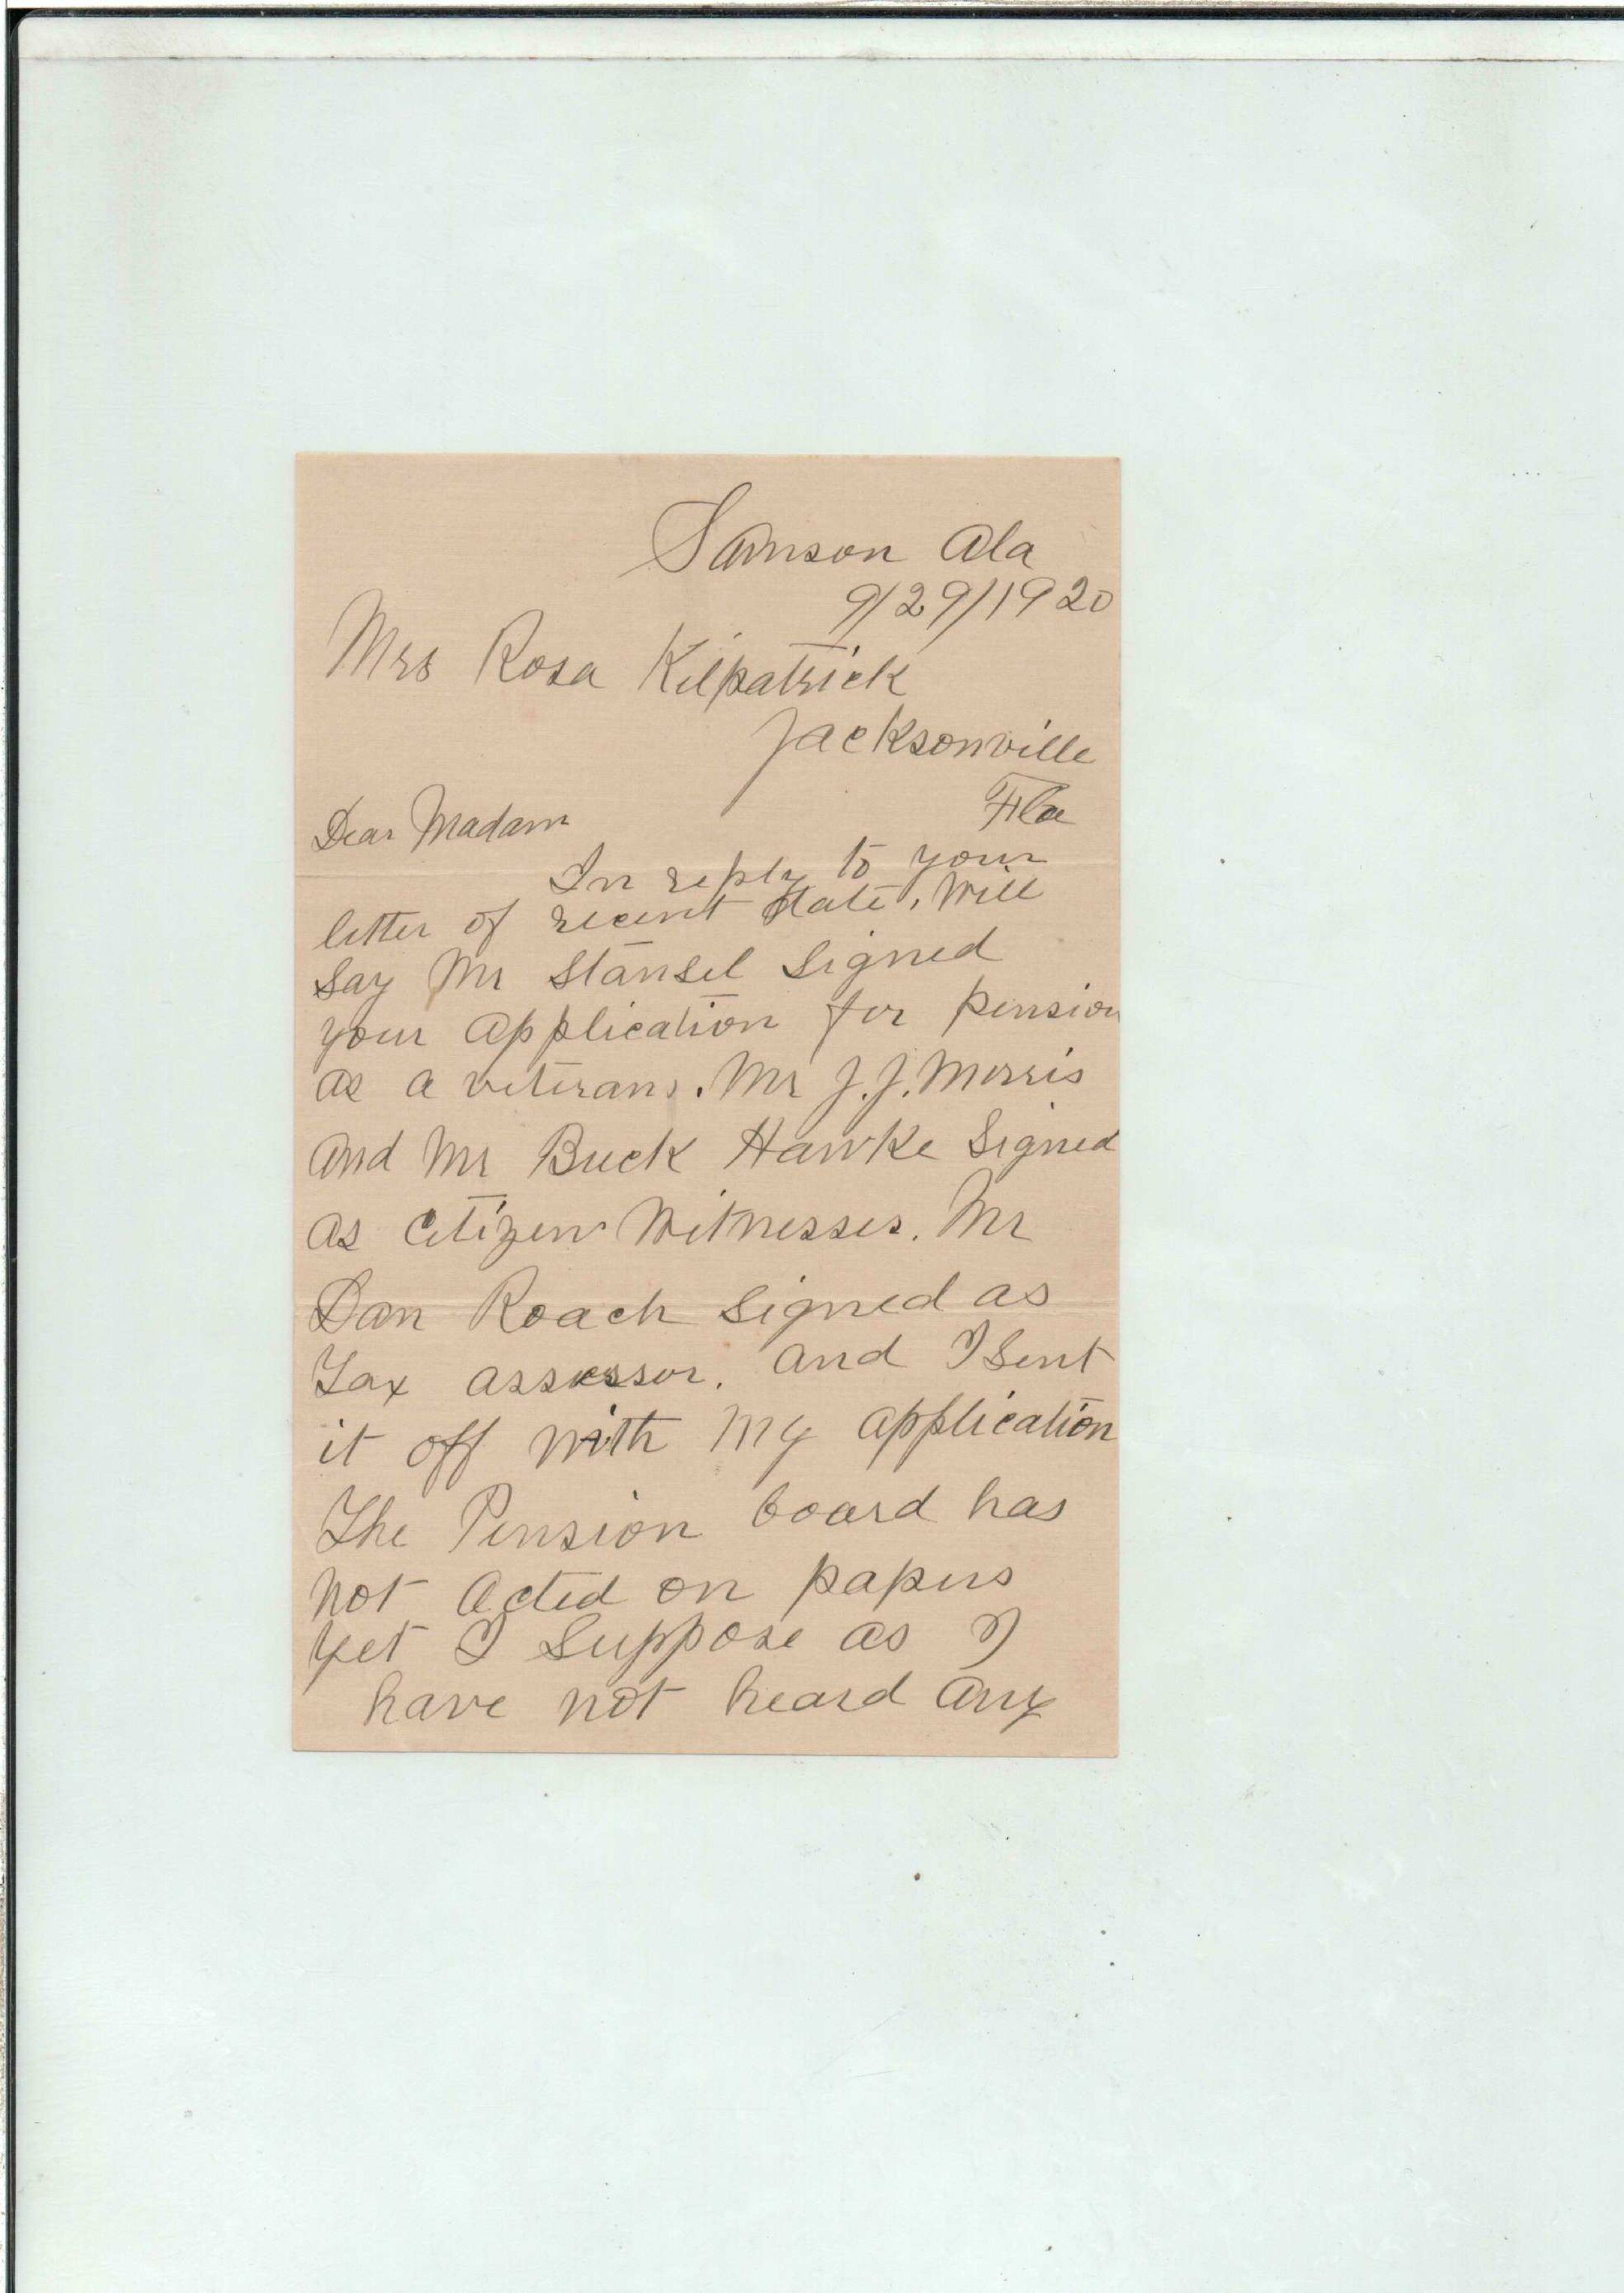 Samson Ala
9/29/1920
Mrs Rosa Kilpatrick
Jacksonville
Fla
Dear Madam
In reply to your
letter of recent date, Will
Say Mr Stansel Signed
your application for pension
as a veteran. Mr J. J. Morris
and Mr Buck Hawke Signed
as Citizen Witnesses. Mr
Dan Roach Signed as
Tax assessor. and I Sent
it off with My application
The Pension board has
Not acted on papers
yet I Suppose as I
have not heard any